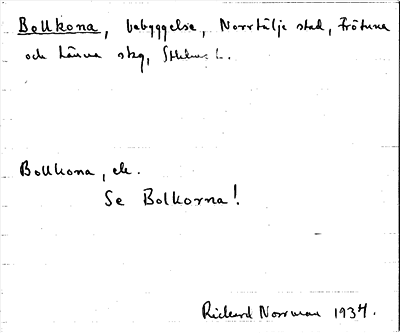 Bollkona, bebyggelse, Norrtälje stad, Frötuna
och Länna skg, Sthlms l.
Bollkona, ek.
Se Bolkorna!
Rickard Norrman 1937.